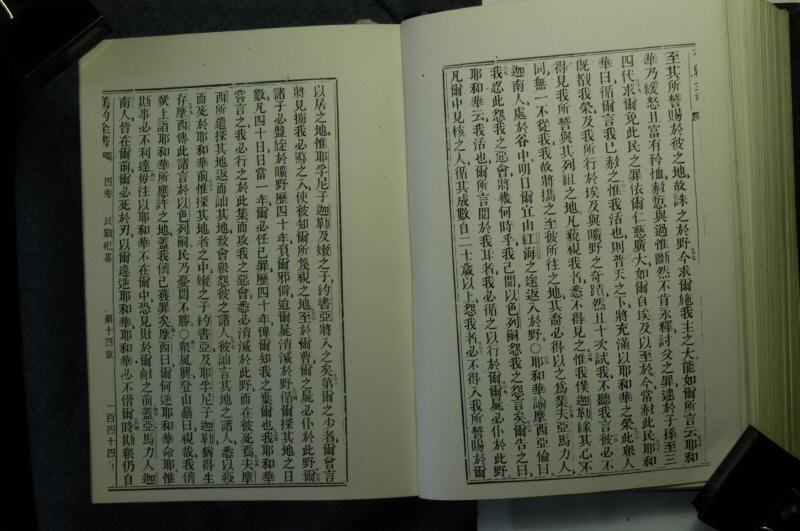 至其所誓賜於彼之地故誅之於野今求爾施我主之大能如爾所言云耶和
華乃緩怒且富有矜恤赦愆與過惟斷然不肯永釋討父之罪逮於子孫至三
四代求爾免此民之罪依爾仁慈廣大如爾自埃及以至於今常赦此民耶和
華曰循爾言我已赦之惟我活也則普天之下將充滿以耶和華之榮此衆人
既覩我榮及我所行於埃及與曠野之奇蹟然且十次試我不聽我言彼必不
得見我所誓與其列祖之地凡藐視我者悉不得見之惟我僕迦勒緣其心不
同無一不從我我故將攜之至彼所往之地其裔必得以之爲業夫亞馬力人
迦南人處於谷中明日爾宜由紅海之途返入於野○耶和華諭摩西亞倫曰
我忍此怨我之惡會將幾何時乎我已聞以色列嗣怨我之怨言矣爾告之曰
耶和華云我活也爾所言聞於我耳者我必循之以行於爾爾屍必仆於此野
凡爾中見核之人循其成數自二十歲以上怨我者必不得入我所誓賜於爾
以居之地惟耶孚尼子迦勒及嫩之子約書亞將入之矣第爾之少者爾曾言
將見擄我必導之入使彼知爾所藐視之地至於爾曹爾之屍必仆於此野爾
諸子必盤旋於曠野歷四十年負爾邪僻迨爾屍消滅於野循爾探其地之日
數凡四十日日當一年爾必任己罪歷四十年俾爾知我之棄爾也我耶和華
嘗言之我必行之於此集而攻我之惡會悉必消滅於此野而在彼死焉夫摩
西所遣探其地返而訕其地致會衆怨彼之諸人彼訕言其地之諸人悉以疫
而死於耶和華前惟探其地者之中嫩之子約書亞及耶孚尼子迦勒猶得生
存摩西傳此諸言於以色列嗣民乃憂悶不勝○衆夙興登山巔曰視哉我儕
於此上詣耶和華所應許之地蓋我儕已獲罪矣摩西曰爾何逆耶和華命耶惟
斯事必不利達毋往以耶和華不在爾中恐見敗於爾敵之前蓋亞馬力人迦
南人皆在爾前爾必死於刃以爾違逆耶和華耶和華必不偕爾時斯衆仍自
舊約全書 四卷 民數紀畧 第十四章 一百四十四